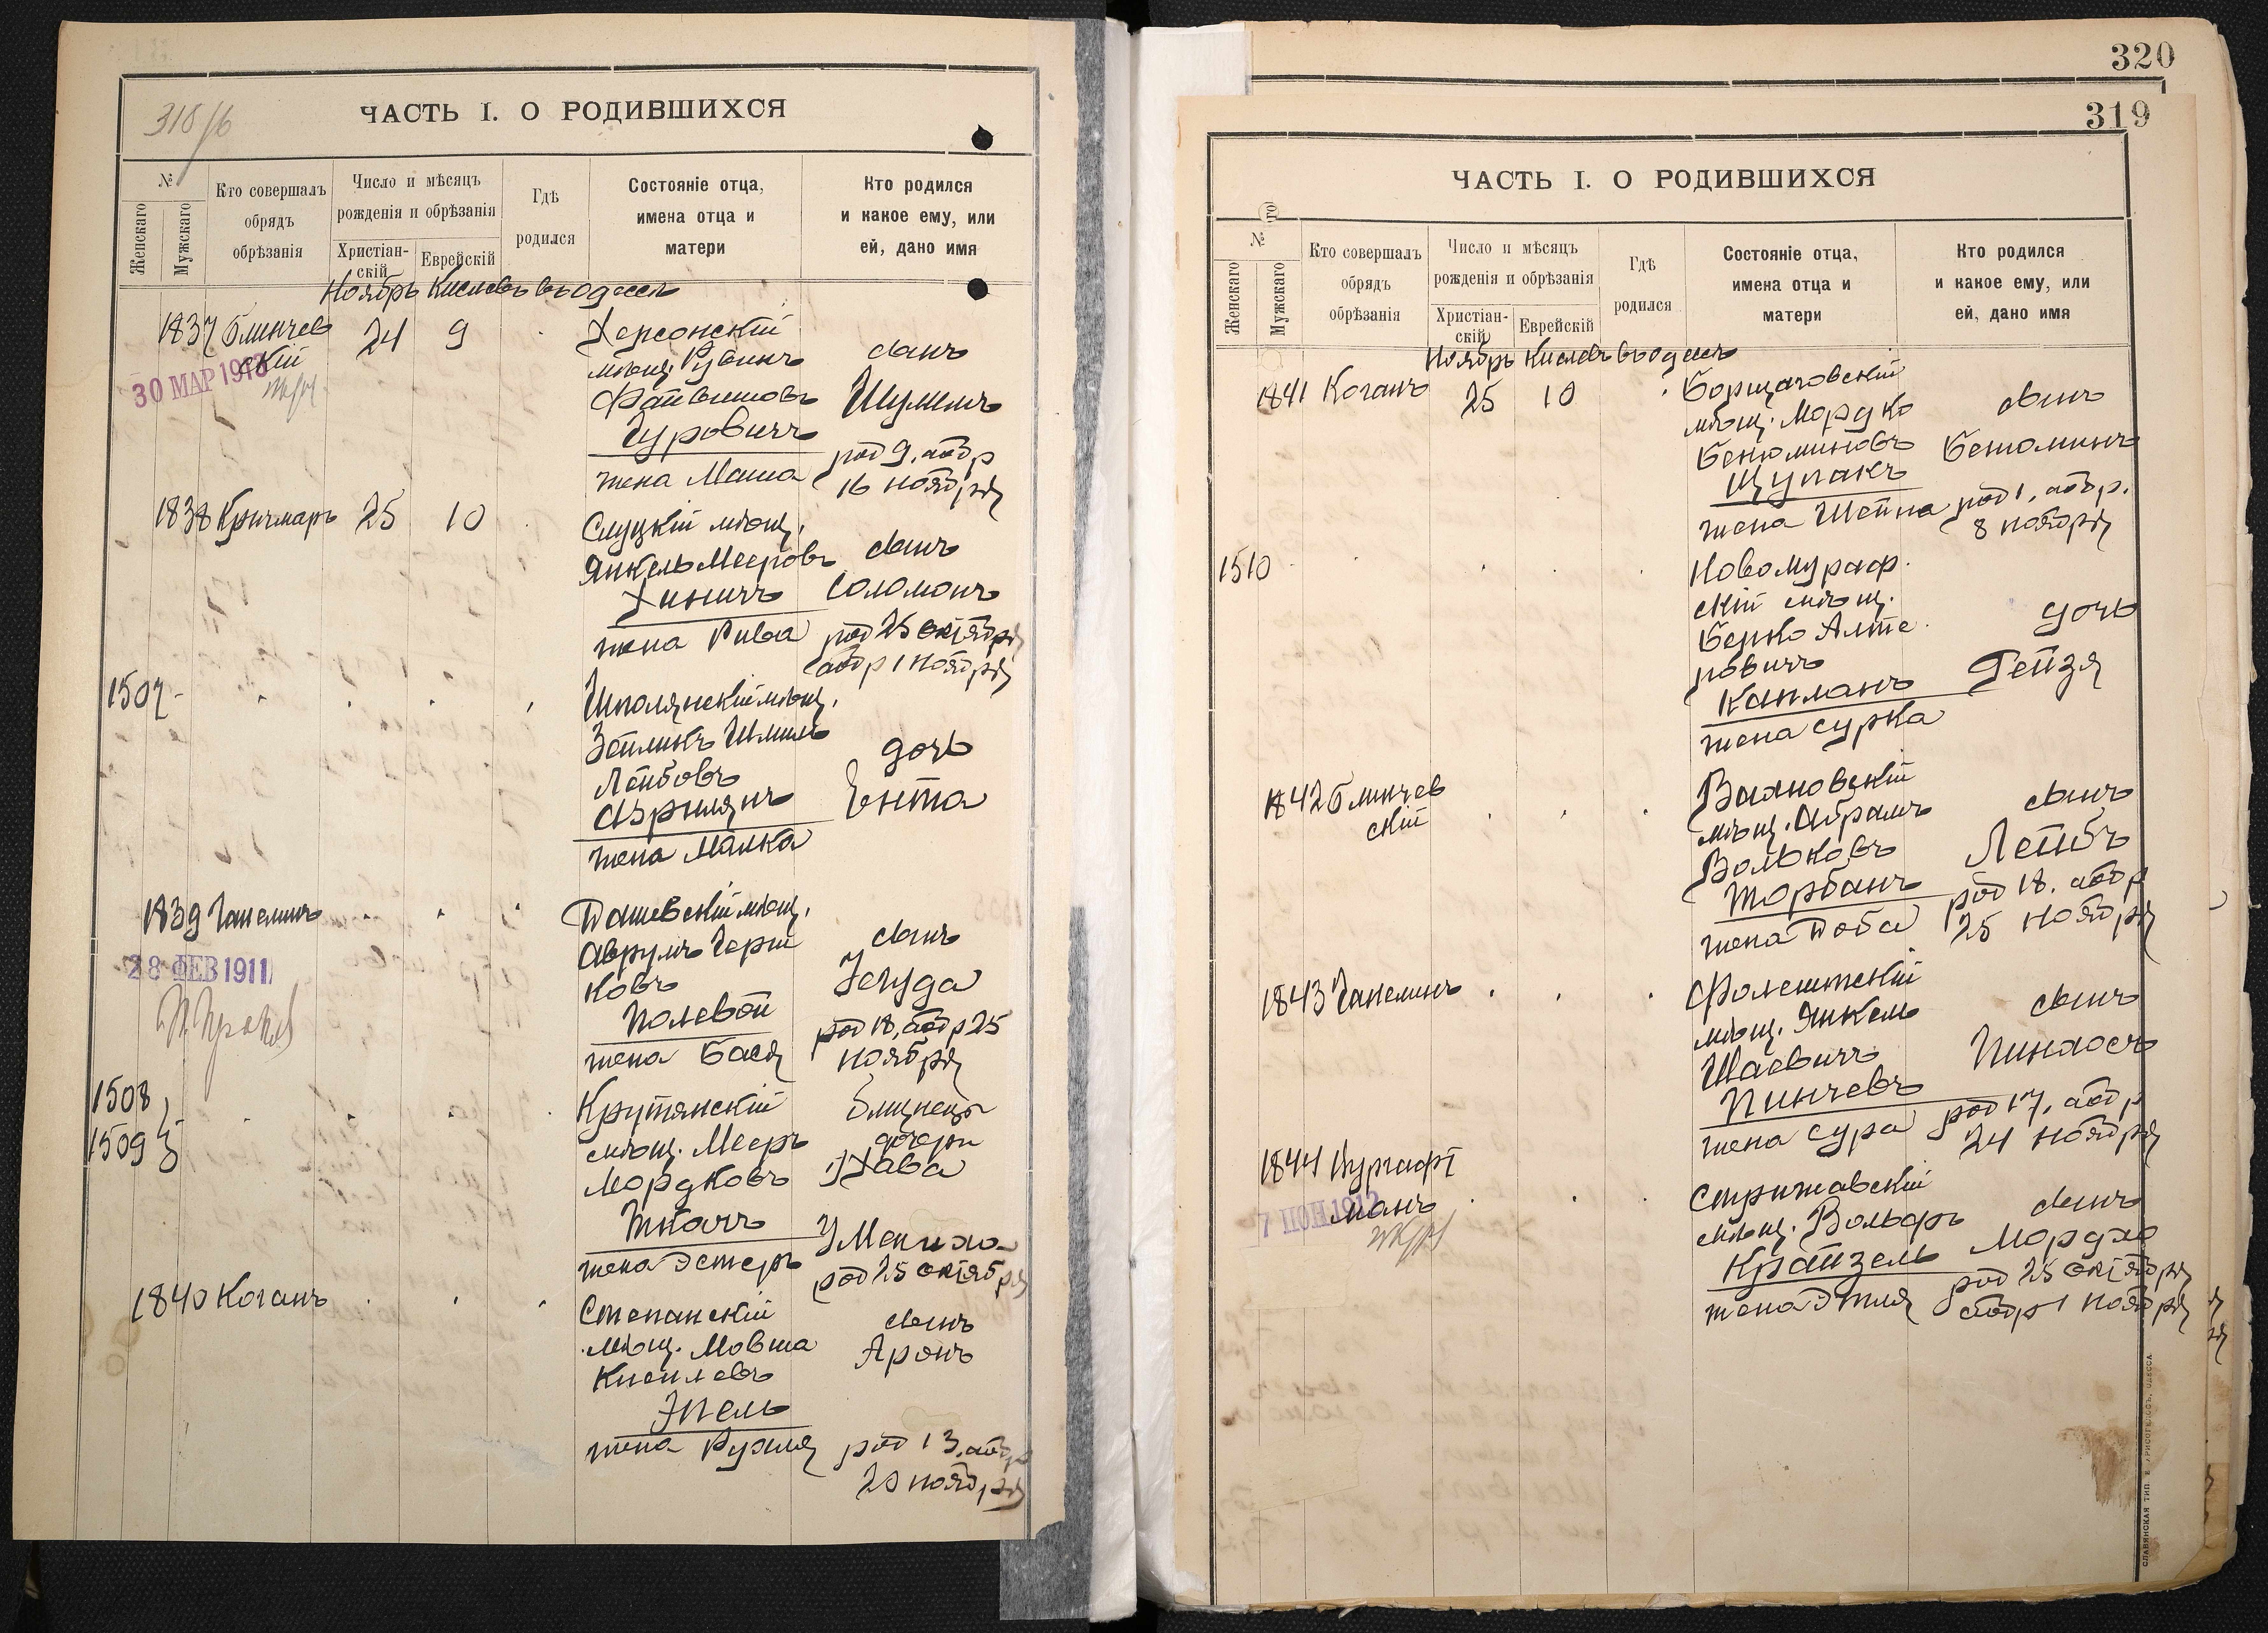 318/б
ЧАСТЬ I. О РОДИВШИХСЯ
№
Женскаго
Мужскаго
Кто совершалъ
обрядъ
обрѣзанія
Число и мѣсяцъ
рожденія и обрѣзанія
Христіан-
скій
Еврейскій
Гдѣ
родился
Состояніе отца,
имена отца и
матери
Кто родился
и какое ему, или
ей, дано имя
Ноябрь Кислевъ въ Одессѣ
1837 Блинчев
скій
24 9
30 МАР 1913
Херсонскій
мѣщ. Рувинъ
Файвишовъ
Гуровичъ
жена Маша
сынъ
Шулимъ
род 9, обр
16 ноября
1838 Кричмаръ 25 10
Слуцкій мѣщ.
Янкель Мееровъ
Хиничъ
жена Рива
сынъ
Соломонъ
род 25 октября
обр 1 ноября
1507
Шполянскій мѣщ.
Зейликъ Шмиль
Лейбовъ
Азрилянъ
жена Малка
дочь
Ента
1839 Гапелинъ
28 ФЕВ 1911
Дашевскій мѣщ.
Аврумъ Герш
ковъ
Полевой
жена Бася
сынъ
Іегуда
род 18, обр 25
ноября
1508
1509
Крутянскій
мѣщ. Мееръ
Мордковъ
Ткачъ
жена Эстеръ
близнецы
дочери
1) Хава
2) Мениха
род 25 октября
1840 Коганъ
Степанскій
мѣщ. Мовша
Кисилевъ
Эпель
жена Рухля
сынъ
Аронъ
род 13, обр
20 ноября
320
319
ЧАСТЬ I. О РОДИВШИХСЯ
№
Женскаго
Мужскаго
Кто совершалъ
обрядъ
обрѣзанія
Число и мѣсяцъ
рожденія и обрѣзанія
Христіан-
скій
Еврейскій
Гдѣ
родился
Состояніе отца,
имена отца и
матери
Кто родился
и какое ему, или
ей, дано имя
Ноябрь Кислевъ въ Одессѣ
1841 Коганъ 25 10
Борщаговскій
мѣщ. Мордко
Бенюминовъ
Щупакъ
жена Шейна
сынъ
Бенюминъ
род 1, обр.
8 ноября
1510
Новомураф.
скій мѣщ.
Берко Алте
ровичъ
Капланъ
жена Сурка
дочь
Гейзя
1842 Блинчев
скій
мѣщ. Абрамъ
Вольковъ
Торбанъ
жена Доба
сынъ
Лейбъ
род 18, обр
25 ноября
1843 Гапелинъ
Фолештскій
мѣщ. Янкель
Шаевичъ
Пинчевъ
жена Сура
сынъ
Пинхосъ
род 17, обр
24 ноября
1844 Вургафт
манъ
Стрижавскій
мѣщ. Вольфъ
Крайзель
жена Этля
сынъ
Мордхо
род 25 октября
обр 1 ноября
СЛАВЯНСКАЯ ТИП. Е. ХРИСОГЕЛОСЪ, ОДЕССА